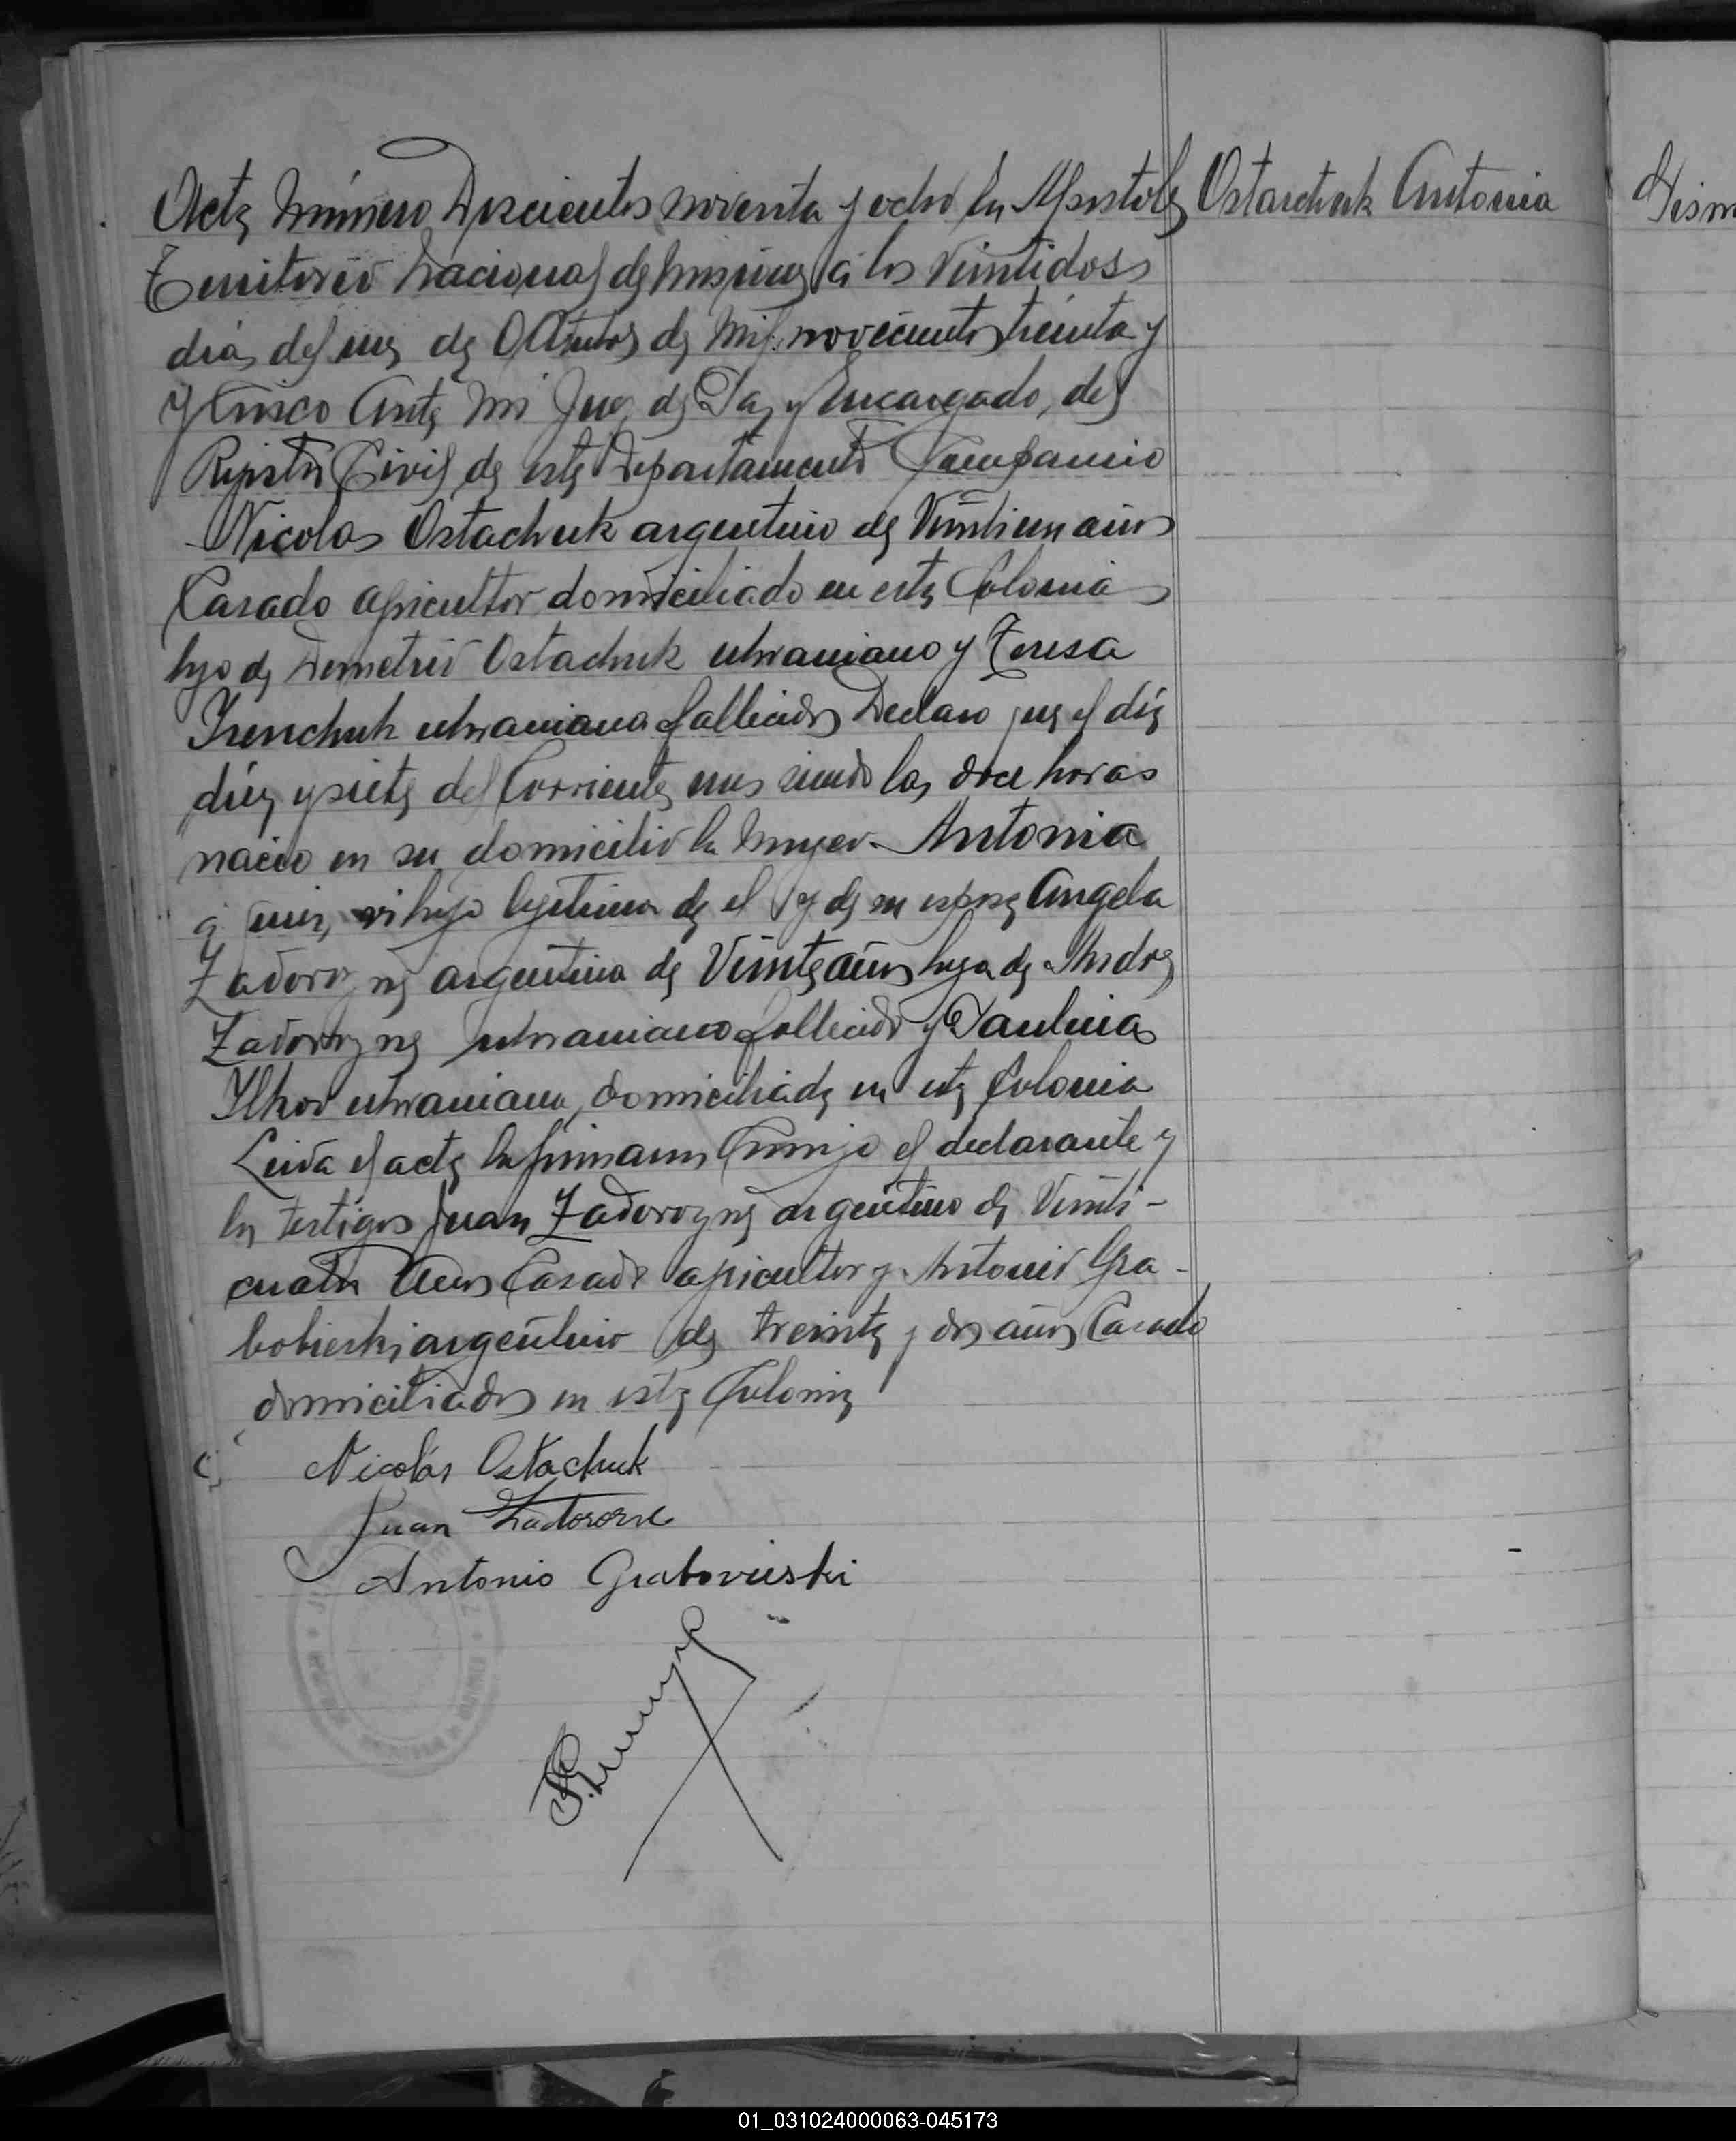 Acta Número Doscientos noventa y ocho En Apostoles
Territorio Nacional de Misiones a los Veintidos
dias del mes de Octubre de Mil novecientos treinta y
y Cinco Ante Mi Juez de Paz y Encargado del
Registro Civil de este Departamento Comparecio
Nicolas Ostachuk argentino de Veintiun años
Casado agricultor domiciliado en esta Colonia
hijo de Demetrio Ostachuk ukraniano y Teresa
Irenchuk ukraniana fallecidos Declaro que el dia
diez y siete del Corriente mes siendo las doce horas
nacio en su domicilio la Mujer Antonia
a quien vi hija legitima de el y de su esposa Angela
Zadorozne argentina de Veinte años hija de Andres
Zadorozne ukraniano fallecido y Paulina
Ilkov ukraniana, domiciliada en esta Colonia
Leida el acta la firmaron Conmigo el declarante y
los testigos Juan Zadorozne argentino de Veinti-
cuatro Años Casado agricultor y Antonio Gra-
bobieski argentino de treinta y dos años Casado
domiciliados en esta Colonia
Nicolás Ostachuk
Juan Zadorozne
Antonio Grabovieski
Ostarchuk Antonia
01_031024000063-045173